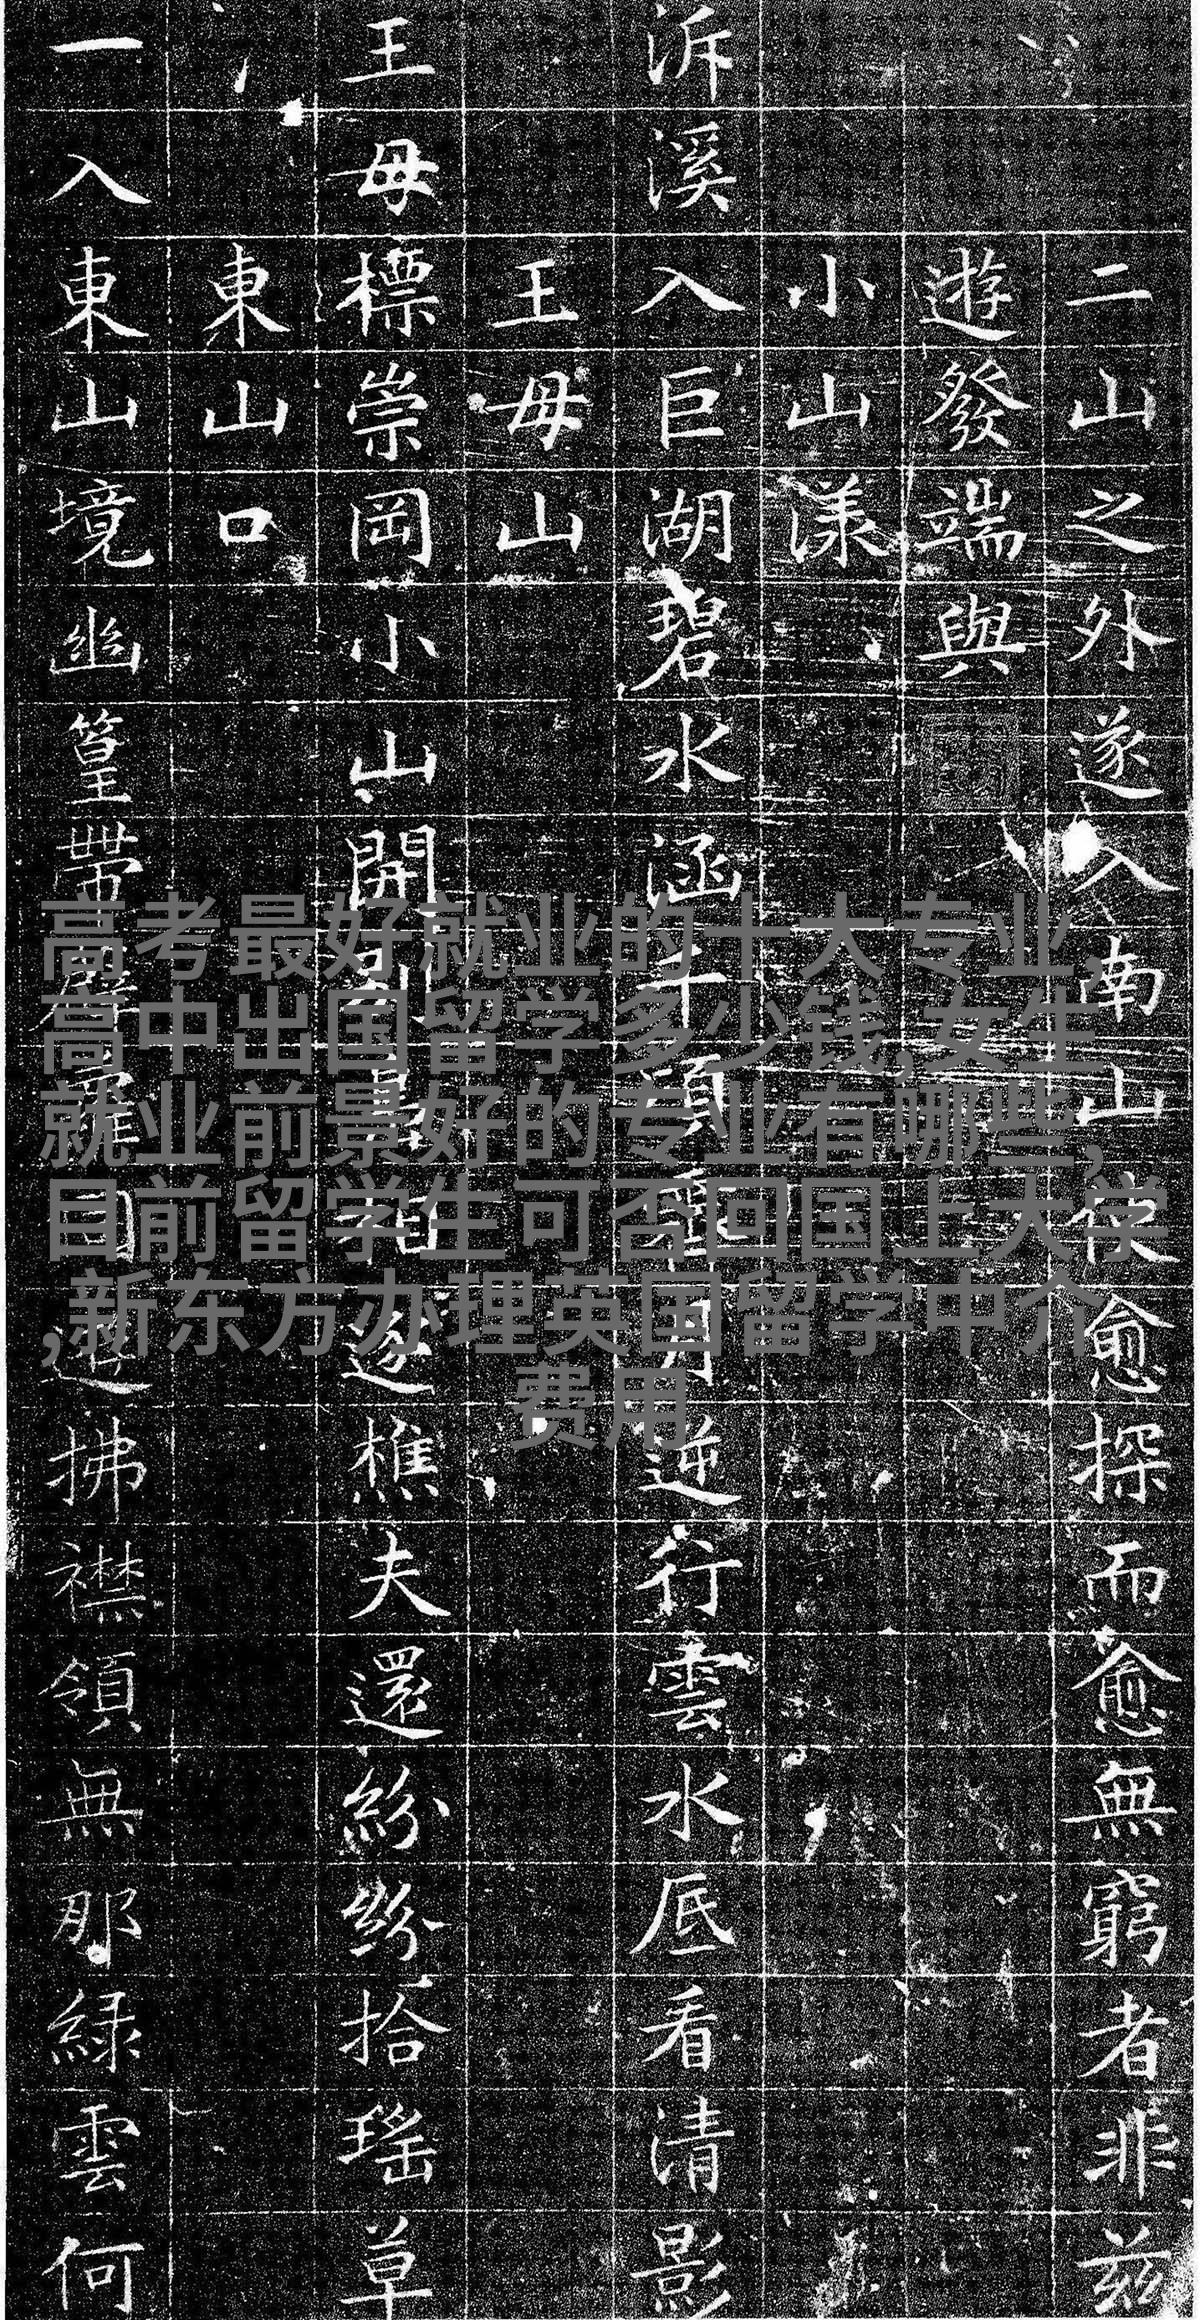 二山之外遂入南山愈探而愈無窮者非茲
遊發端與
小山漾
泝溪入巨湖碧水涵千頃月逆行雲水底看清影
王母山
王母標崇岡小山開別逐樵夫還紛紛拾瑤草
東山口
一入東山境幽篁帶拂襟領無那綠雲何
高考最好就业的十大专业,
高中出国留学多少钱,女生
就业前景好的专业有哪些,
目前留学生可否回国上大学
,新东方办理英国留学中介
费用